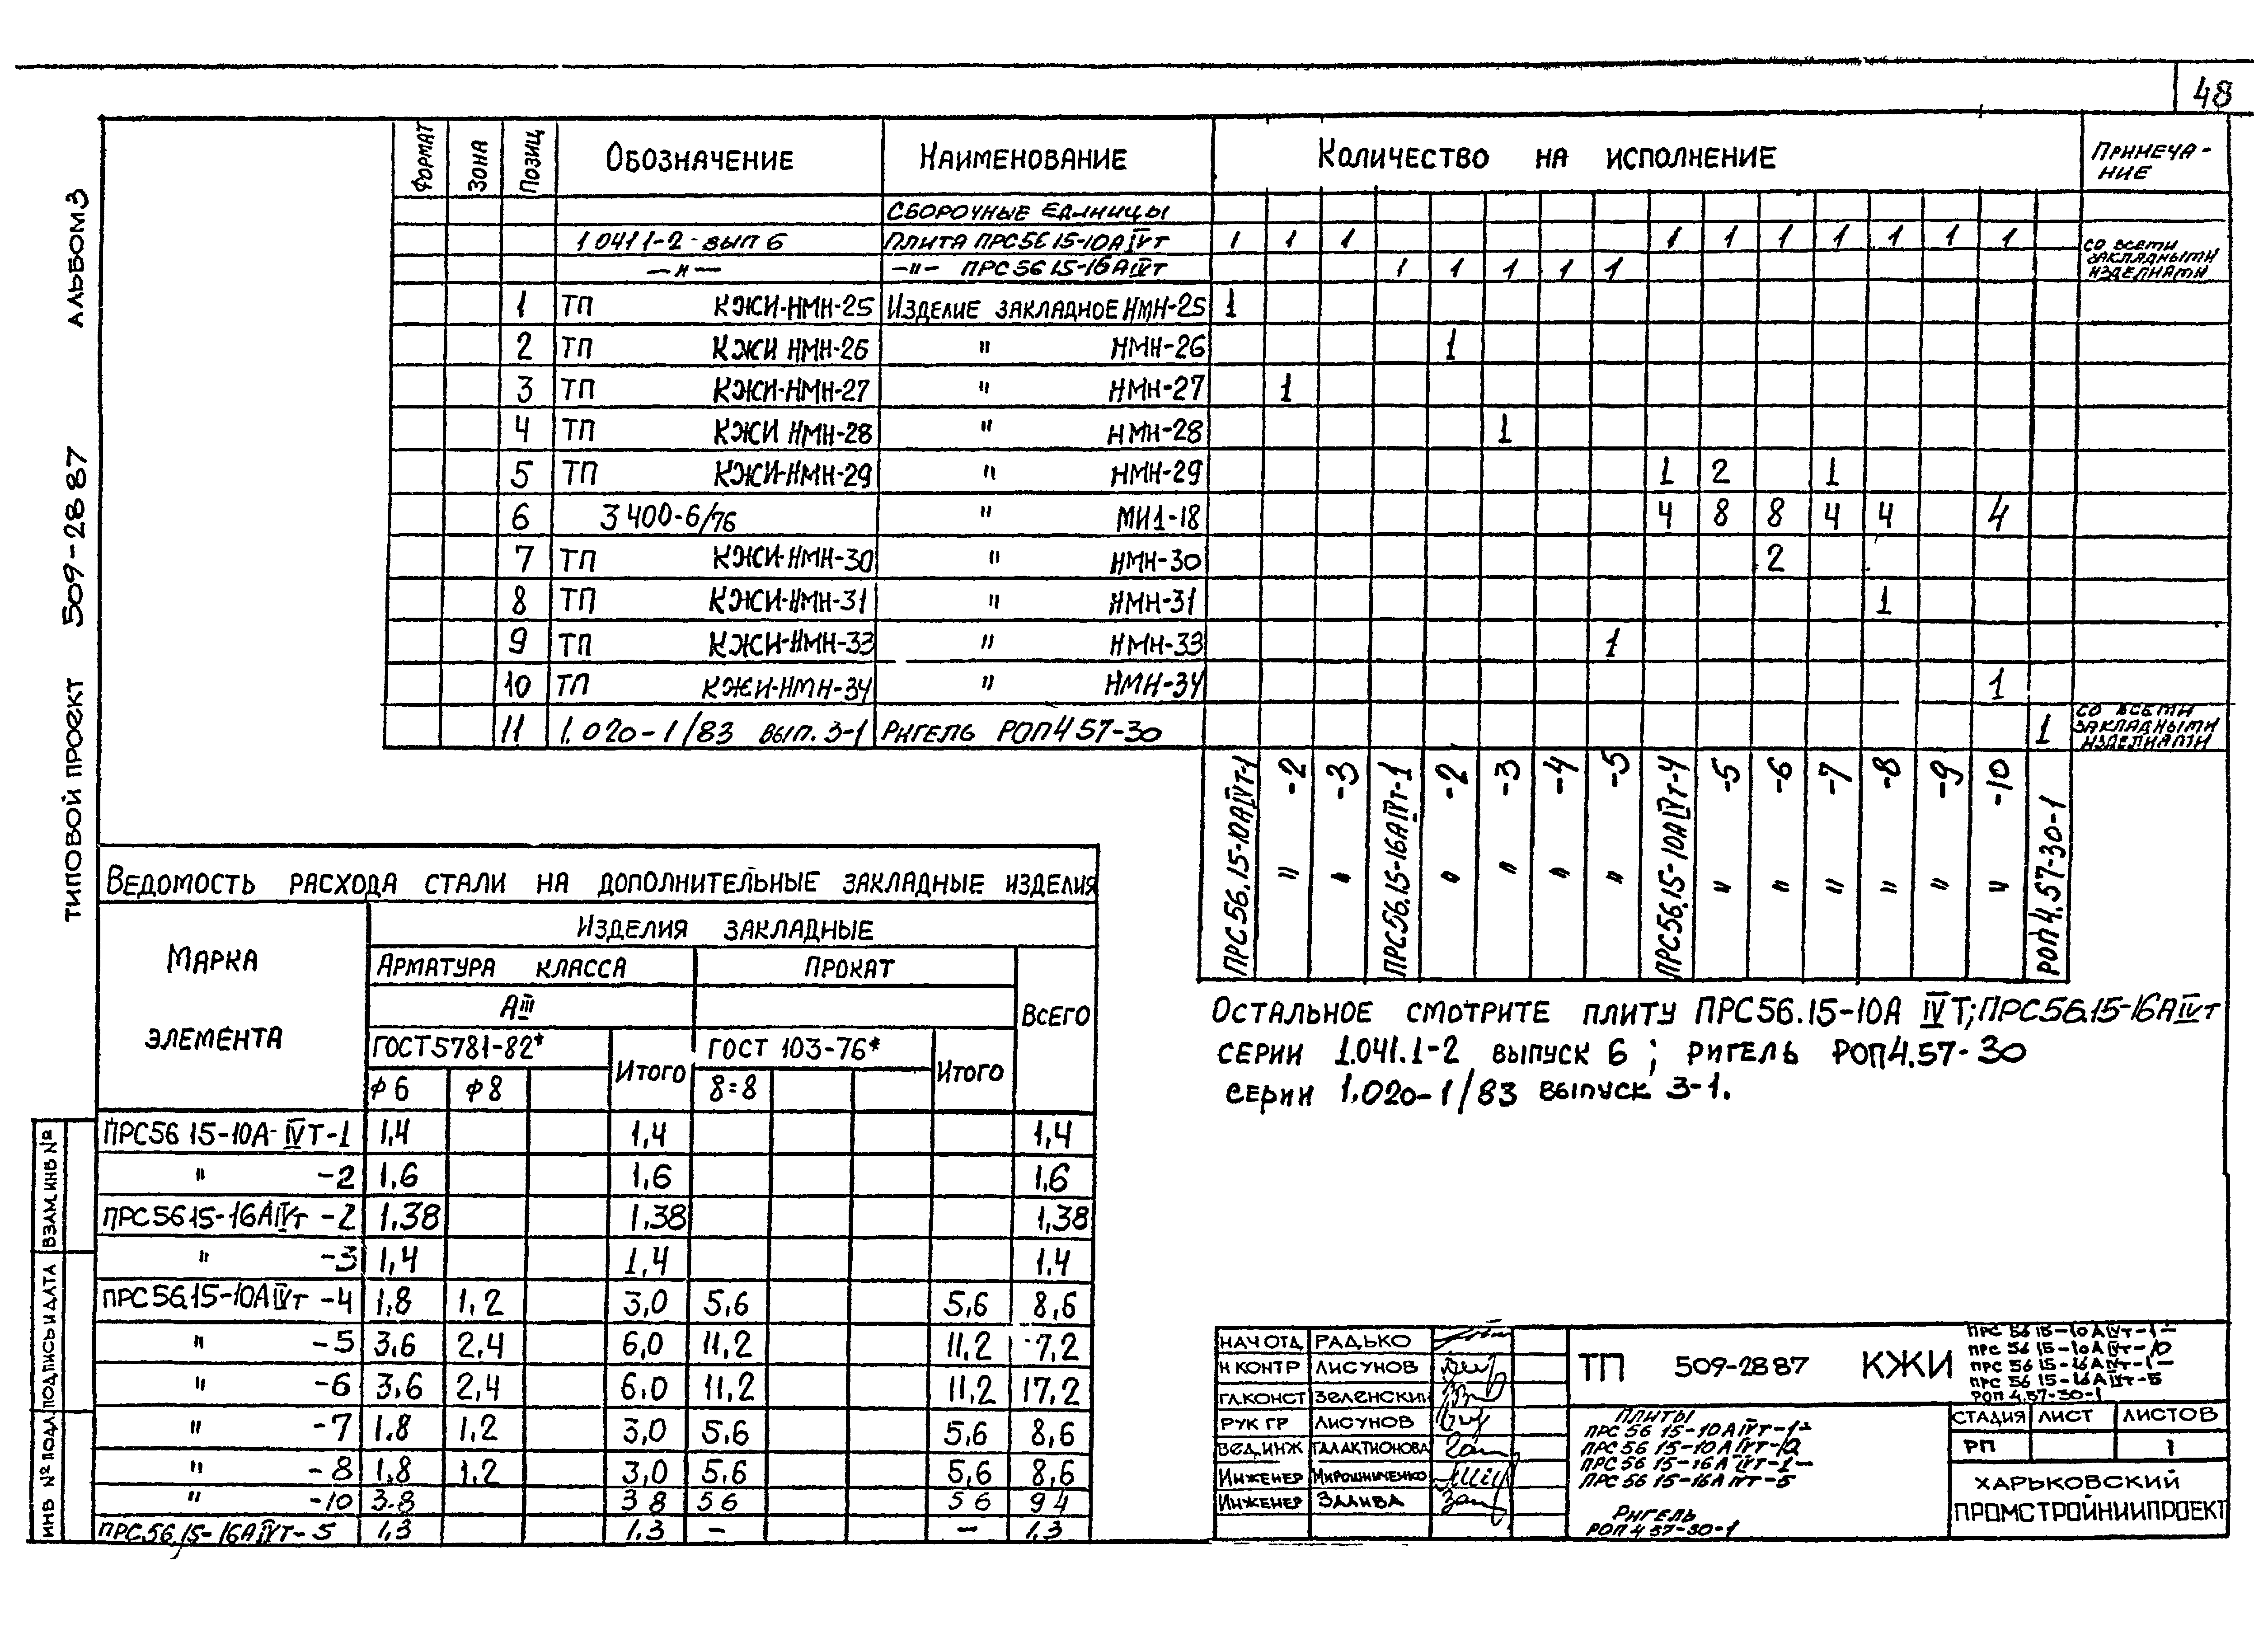 48
АЛЬБОМ 3
ТИПОВОЙ ПРОЕКТ 509-28 87
ФОРМАТ ЗОНА ПОЗИЦ ОБОЗНАЧЕНИЕ НАИМЕНОВАНИЕ КОЛИЧЕСТВО НА ИСПОЛНЕНИЕ ПРИМЕЧА-
НИЕ
СБОРОЧНЫЕ ЕДИНИЦЫ
1 041 1-2 вып 6 ПЛИТА ПРС56 15-10АIVТ 1 1 1 1 1 1 1 1 1 1 СО ВСЕМИ
ЗАКЛАДНЫМИ
ИЗДЕЛИЯМИ
—"— —"— ПРС56 15-16АIVТ 1 1 1 1 1
1 ТП КЖИ-НМН-25 ИЗДЕЛИЕ ЗАКЛАДНОЕ НМН-25 1
2 ТП КЖИ НМН-26 " НМН-26 1
3 ТП КЖИ-НМН-27 " НМН-27 1
4 ТП КЖИ НМН-28 " НМН-28 1
5 ТП КЖИ-НМН-29 " НМН-29 1 2 1
6 3 400-6/76 " МИ1-18 4 8 8 4 4 4
7 ТП КЖИ-НМН-30 " НМН-30 2
8 ТП КЖИ-НМН-31 " НМН-31 1
9 ТП КЖИ-НМН-33 " НМН-33 1
10 ТП КЖИ-НМН-34 " НМН-34 1
11 1.020-1/83 ВЫП. 3-1 РИГЕЛЬ РОП4 57-30 1 СО ВСЕМИ
ЗАКЛАДНЫМИ
ИЗДЕЛИЯМИ
ПРС56.15-10АIVТ-1
" -2
" -3
ПРС56.15-16АIVТ-1
" -2
" -3
" -4
" -5
ПРС56.15-10АIVТ-4
" -5
" -6
" -7
" -8
" -9
" -10
РОП4.57-30-1
ОСТАЛЬНОЕ СМОТРИТЕ ПЛИТУ ПРС56.15-10А IVТ; ПРС56.15-16АIVТ
СЕРИИ 1.041.1-2 ВЫПУСК 6 ; РИГЕЛЬ РОП4.57-30
СЕРИИ 1.020-1/83 ВЫПУСК 3-1.
ВЕДОМОСТЬ РАСХОДА СТАЛИ НА ДОПОЛНИТЕЛЬНЫЕ ЗАКЛАДНЫЕ ИЗДЕЛИЯ
МАРКА
ЭЛЕМЕНТА
ИЗДЕЛИЯ ЗАКЛАДНЫЕ
АРМАТУРА КЛАССА ПРОКАТ ВСЕГО
АIII
ГОСТ5781-82* ИТОГО ГОСТ 103-76* ИТОГО
φ6 φ8 8=8
ПРС56 15-10А-IVТ-1 1,4 1,4 1,4
" -2 1,6 1,6 1,6
ПРС56 15-16АIVТ -2 1,38 1,38 1,38
" -3 1,4 1,4 1.4
ПРС56.15-10АIVТ -4 1,8 1,2 3,0 5,6 5,6 8,6
" -5 3,6 2,4 6,0 11,2 11,2 7,2
" -6 3,6 2,4 6,0 11,2 11,2 17,2
" -7 1.8 1.2 3,0 5,6 5,6 8,6
" -8 1.8 1.2 3,0 5,6 5,6 8,6
" -10 3.8 3 8 5 6 5 6 9 4
ПРС56.15-16АIVТ-5 1,3 1.3 — — 1,3
ВЗАМ. ИНВ №
ПОДПИСЬ И ДАТА
ИНВ № ПОДЛ.
НАЧ ОТД РАДЬКО
Н КОНТР ЛИСУНОВ
ГЛ.КОНСТ ЗЕЛЕНСКИЙ
РУК ГР ЛИСУНОВ
ВЕД.ИНЖ ГАЛАКТИОНОВА
ИНЖЕНЕР МИРОШНИЧЕНКО
ИНЖЕНЕР ЗАЛИВА
ТП 509-28 87 КЖИ
ПРС 56 15-10АIVТ-1-
ПРС 56 15-10АIVТ-10
ПРС 56 15-16АIVТ-1-
ПРС 56 15-16АIVТ-5
РОП 4.57-30-1
ПЛИТЫ
ПРС 56 15-10АIVТ-1-
ПРС 56 15-10АIVТ-10
ПРС 56 15-16АIVТ-1-
ПРС 56 15-16АIVТ-5
РИГЕЛЬ
РОП 4 57-30-1
СТАДИЯ ЛИСТ ЛИСТОВ
РП 1
ХАРЬКОВСКИЙ
ПРОМСТРОЙНИИПРОЕКТ